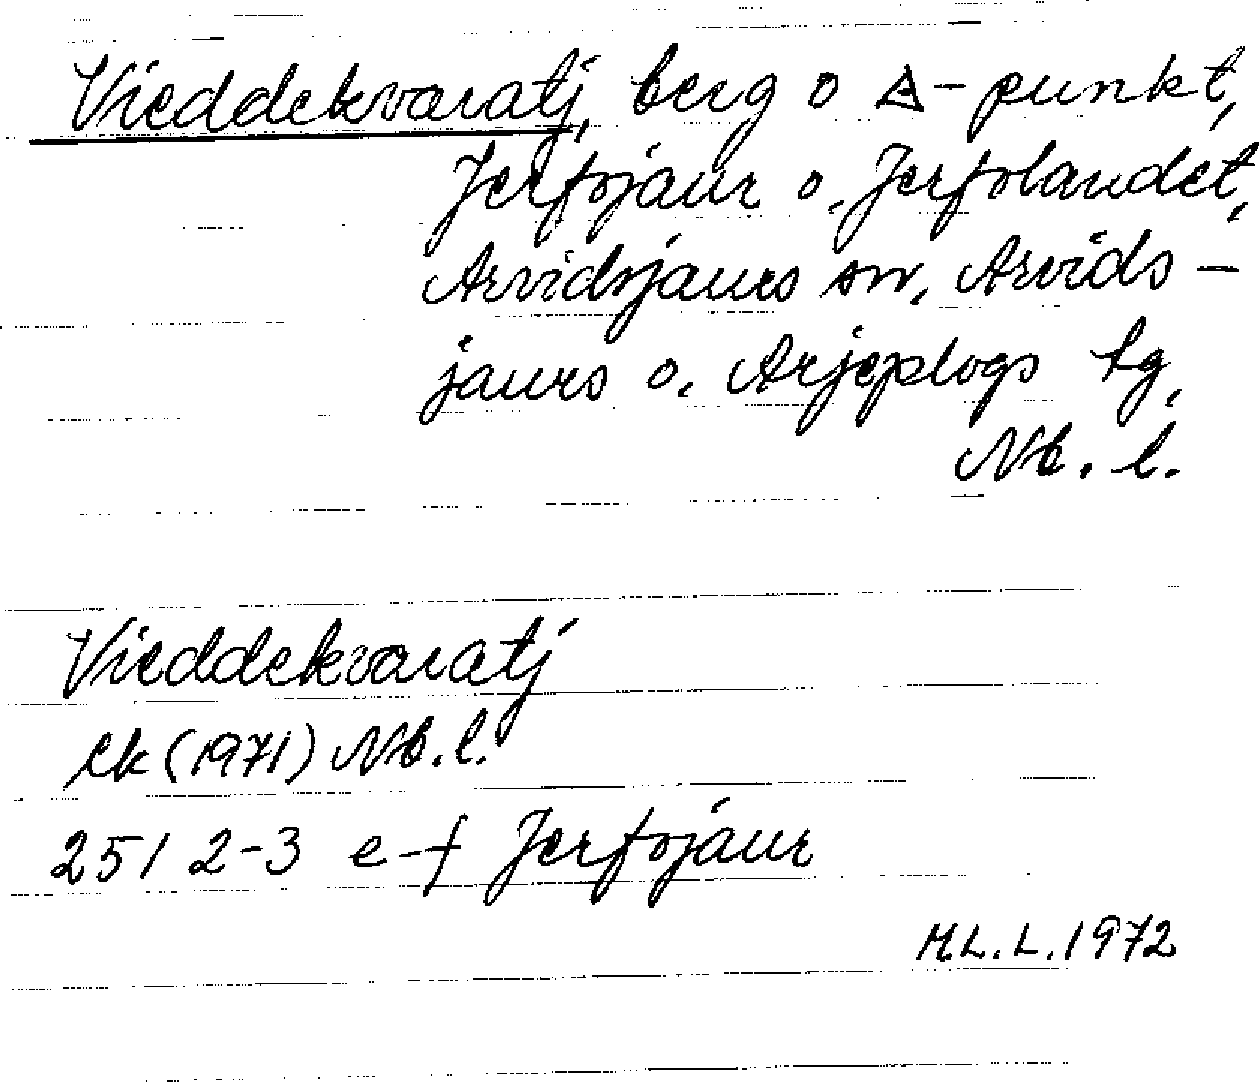 Vieddekvaratj, berg o △-punkt,
Jerfojaur o. Jerfolandet,
Arvidsjaurs sn, Arvids-
jaurs o. Arjeplogs tg,
Nb. l.
Vieddekvaratj
Ek (1971) Nb. l.
251 2-3 e-f Jerfojaur
M.L.L. 1972